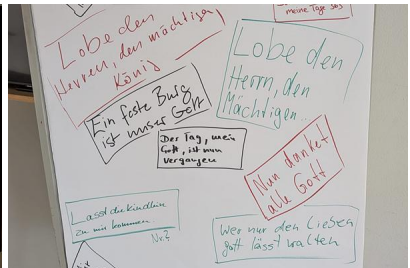 meine Tage
Lobe den
Herren, den mächtigen
König
Lobe den
Herrn, den
Mächtigen...
Ein feste Burg
ist unser Gott
Der Tag, mein
Gott, ist nun
vergangen
Nun danket
alle Gott
Lasst die Kindlein
zu mir kommen
Nr.?
Wer nur den lieben
gott lässt walten